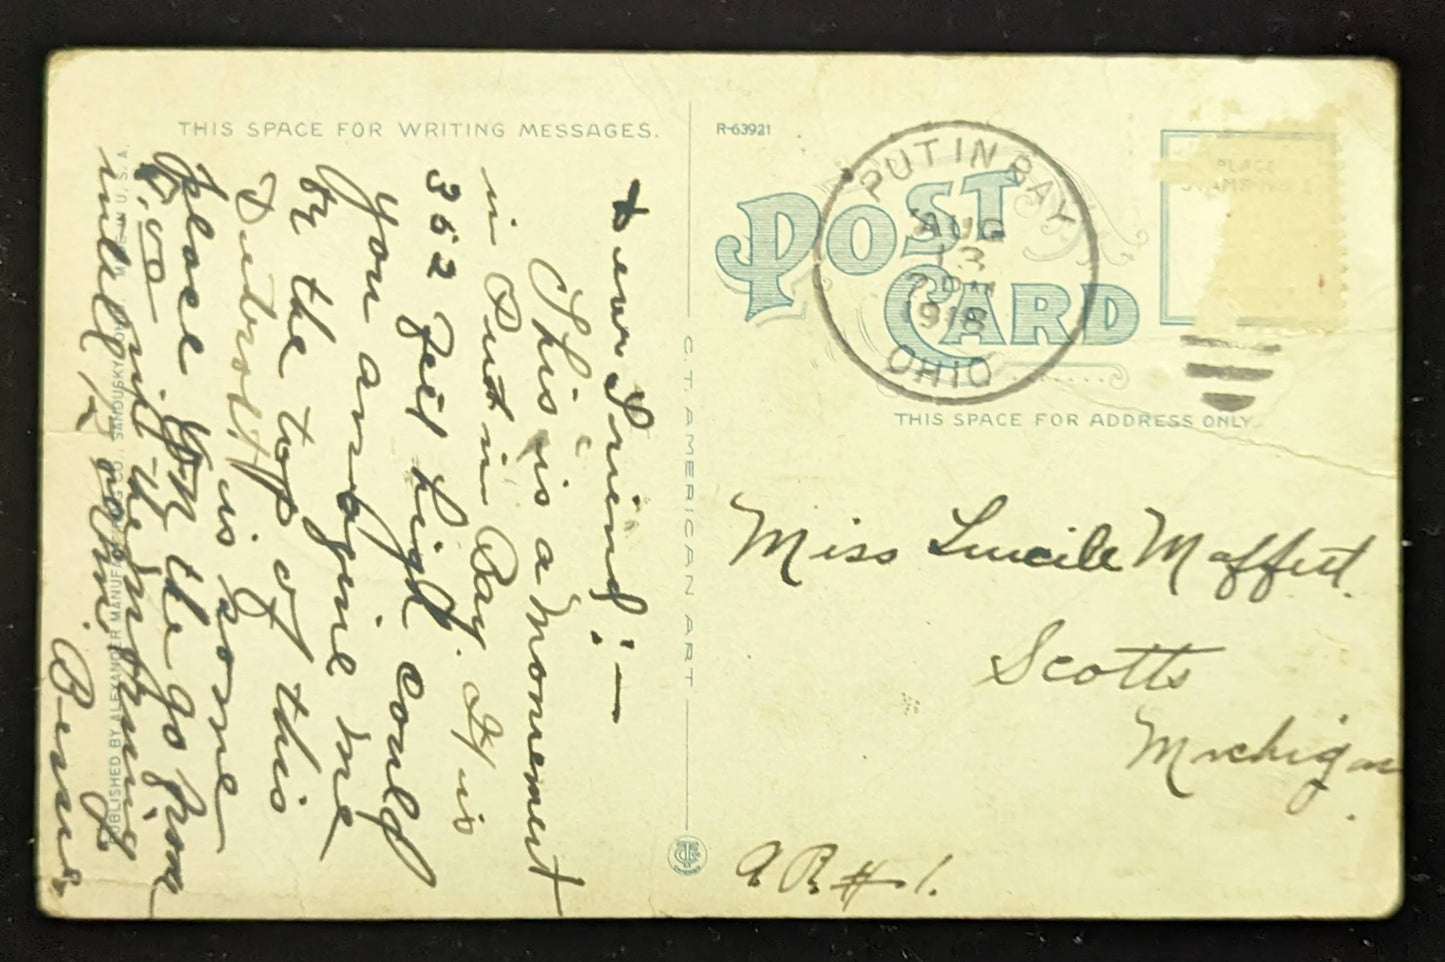 THIS SPACE FOR WRITING MESSAGES.
Dear Friend:—
This is a monement
in Put in Bay. It is
352 feet high could
you amagine me
on the top of this
Detroit is some
place on the go from
in the morning
until 12 Bessie
PUBLISHED BY ALEXANDER MANUFACTURING CO., SANDUSKY, OHIO. MADE IN U. S. A.
C. T. AMERICAN ART
R-63921
POST CARD
PLACE
STAMP HERE
PUT IN BAY
AUG
13
PM
1918
OHIO
THIS SPACE FOR ADDRESS ONLY
Miss Lucile Maffett.
Scotts
Michigan.
R #1.